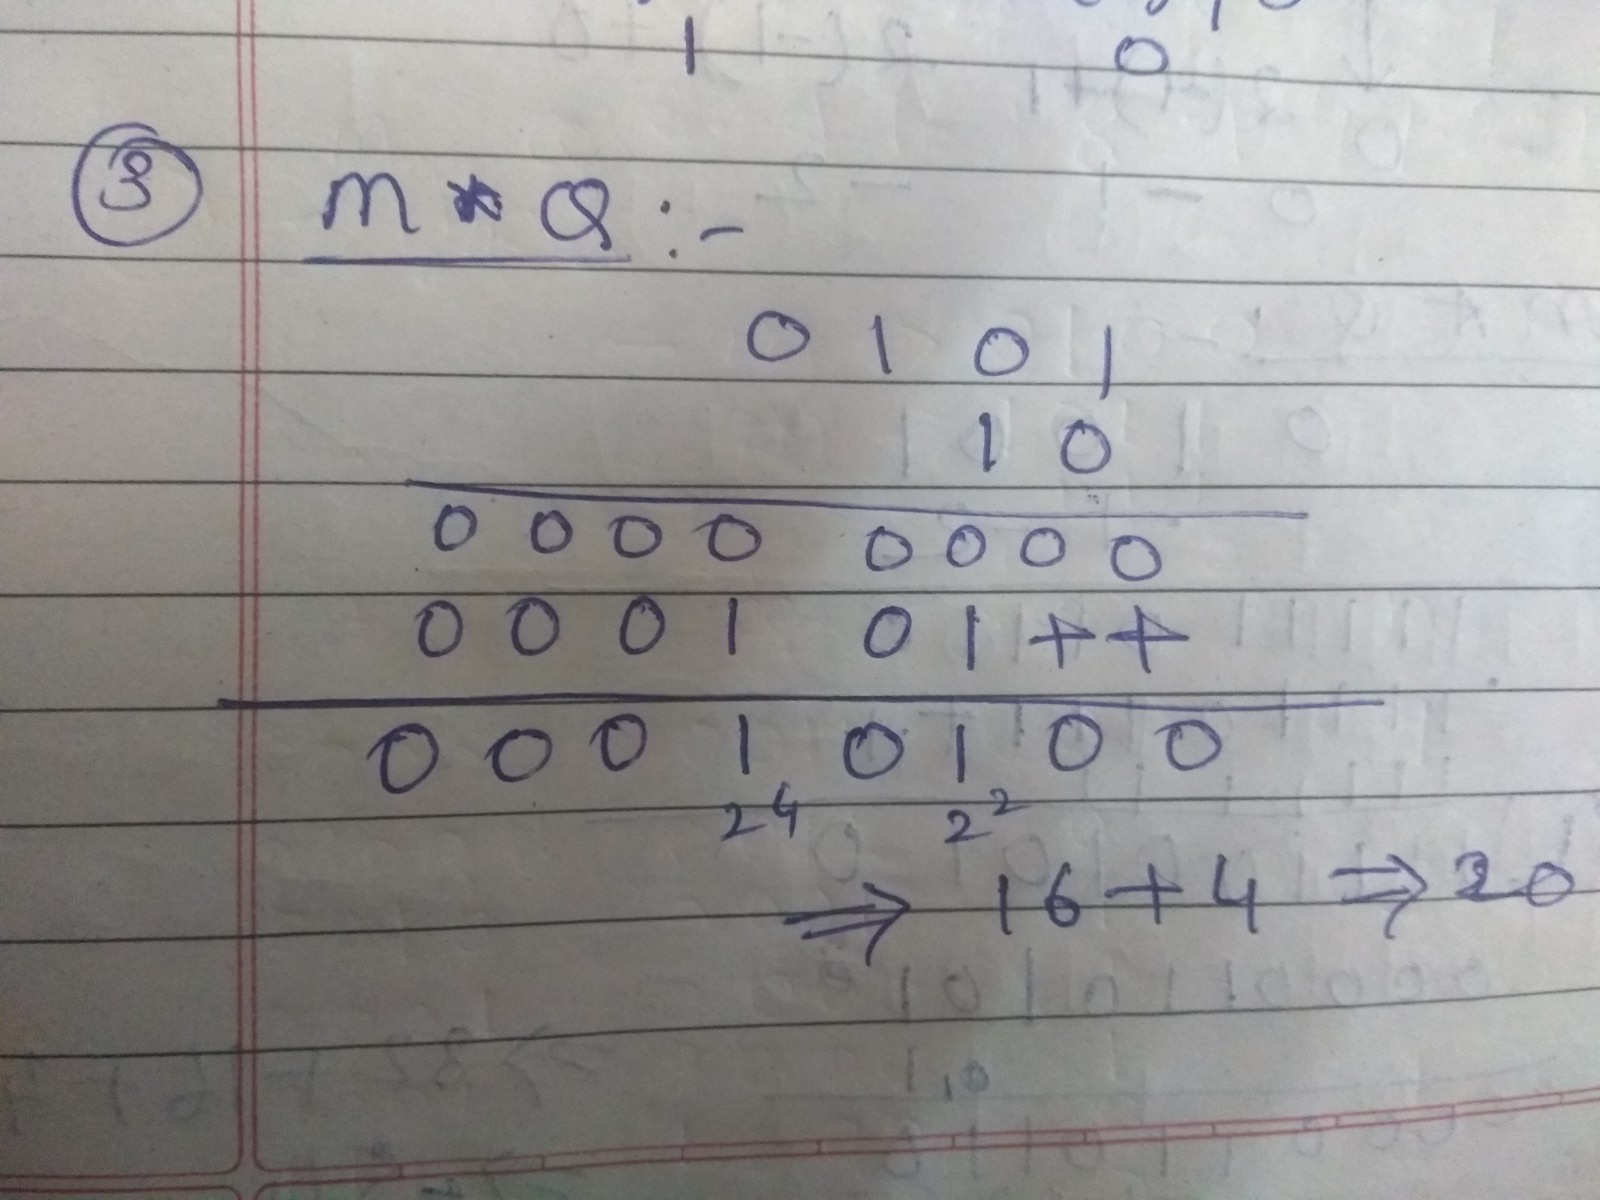 1 0
③ M * Q :-
0 1 0 1
1 0
0 0 0 0 0 0 0 0
0 0 0 1 0 1 + +
0 0 0 1 0 1 0 0
2⁴ 2²
⇒ 16 + 4 ⇒ 20